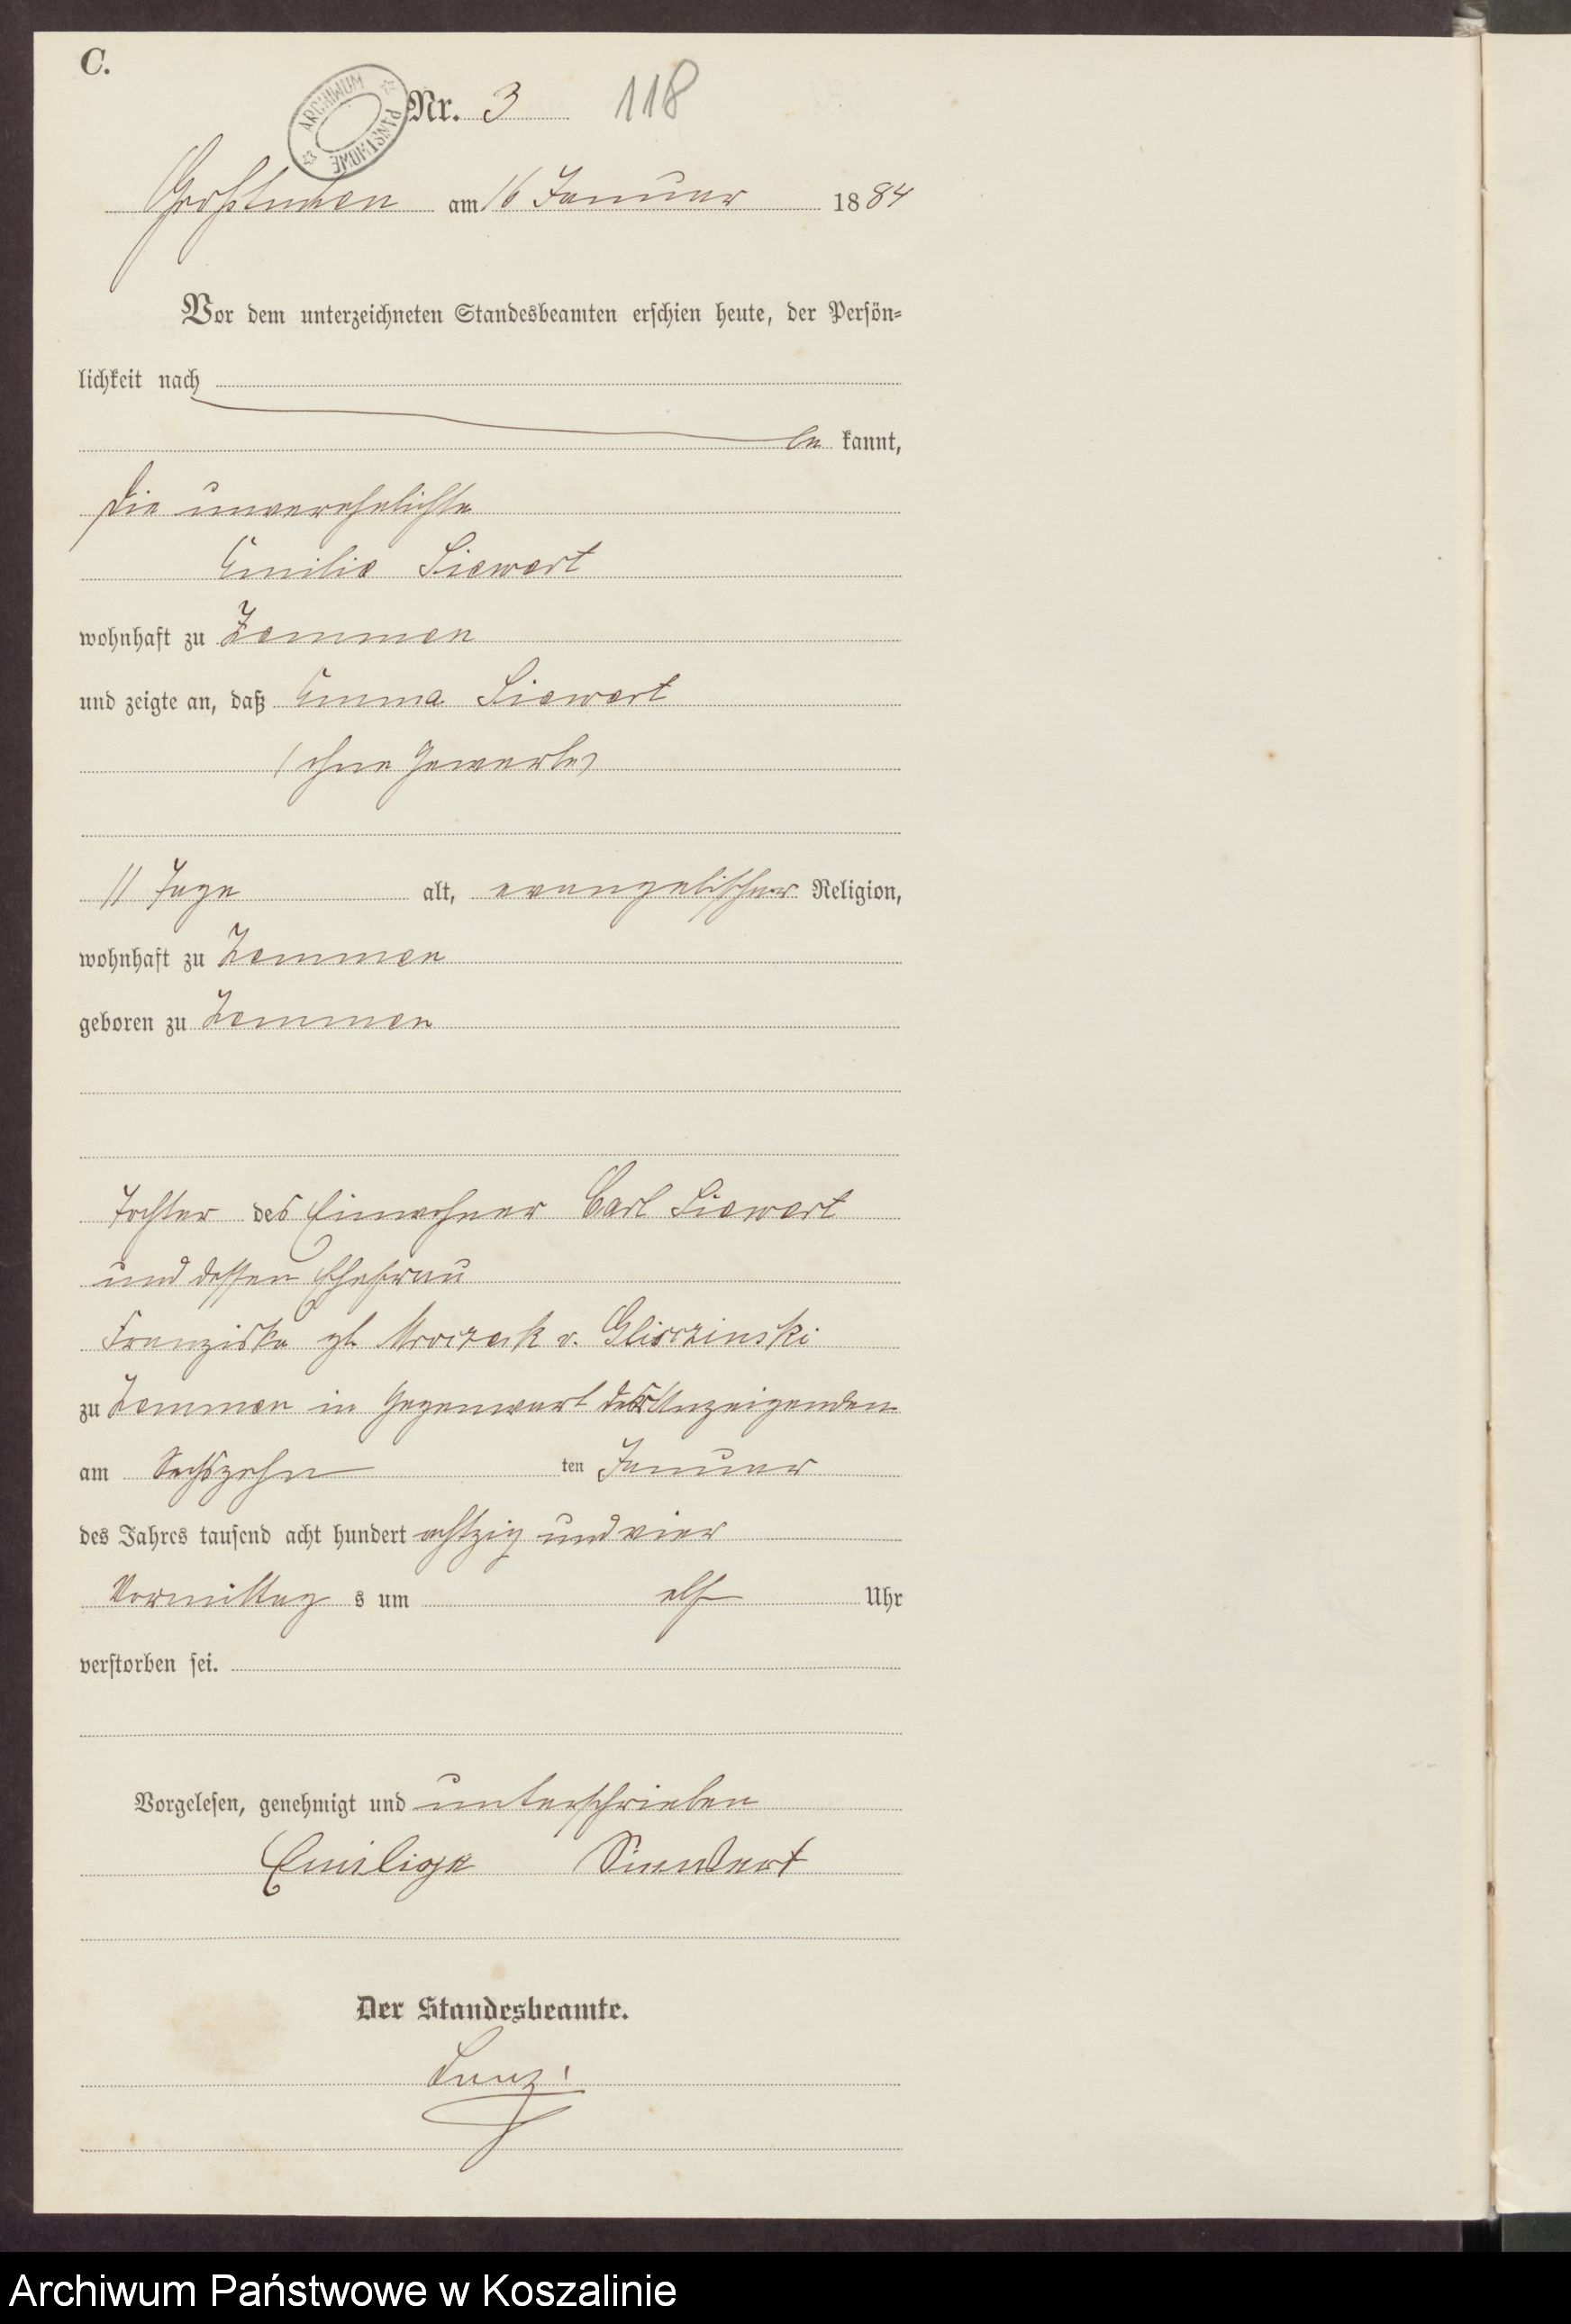 C.
ARCHIWUM PAŃSTWOWE
Nr. 3 118
Großtuchen am 16 Januar 1884
Vor dem unterzeichneten Standesbeamten erschien heute, der Persön-
lichkeit nach
be kannt,
die unverehelichte
Emilie Siewert
wohnhaft zu Zemmen
und zeigte an, daß Emma Siewert
(ohne Gewerbe)
11 Tage alt, evangelischer Religion,
wohnhaft zu Zemmen
geboren zu Zemmen
Tochter des Einwohner Carl Siewert
und dessen Ehefrau
Franziska gb. Mroczeck v. Glisczinski
zu Zemmen in Gegenwart der Anzeigenden
am Sechszehn ten Januar
des Jahres tausend acht hundert achtzig und vier
Vormittag s um elf Uhr
verstorben sei.
Vorgelesen, genehmigt und unterschrieben
Siewert
Der Standesbeamte.
Archiwum Państwowe w Koszalinie